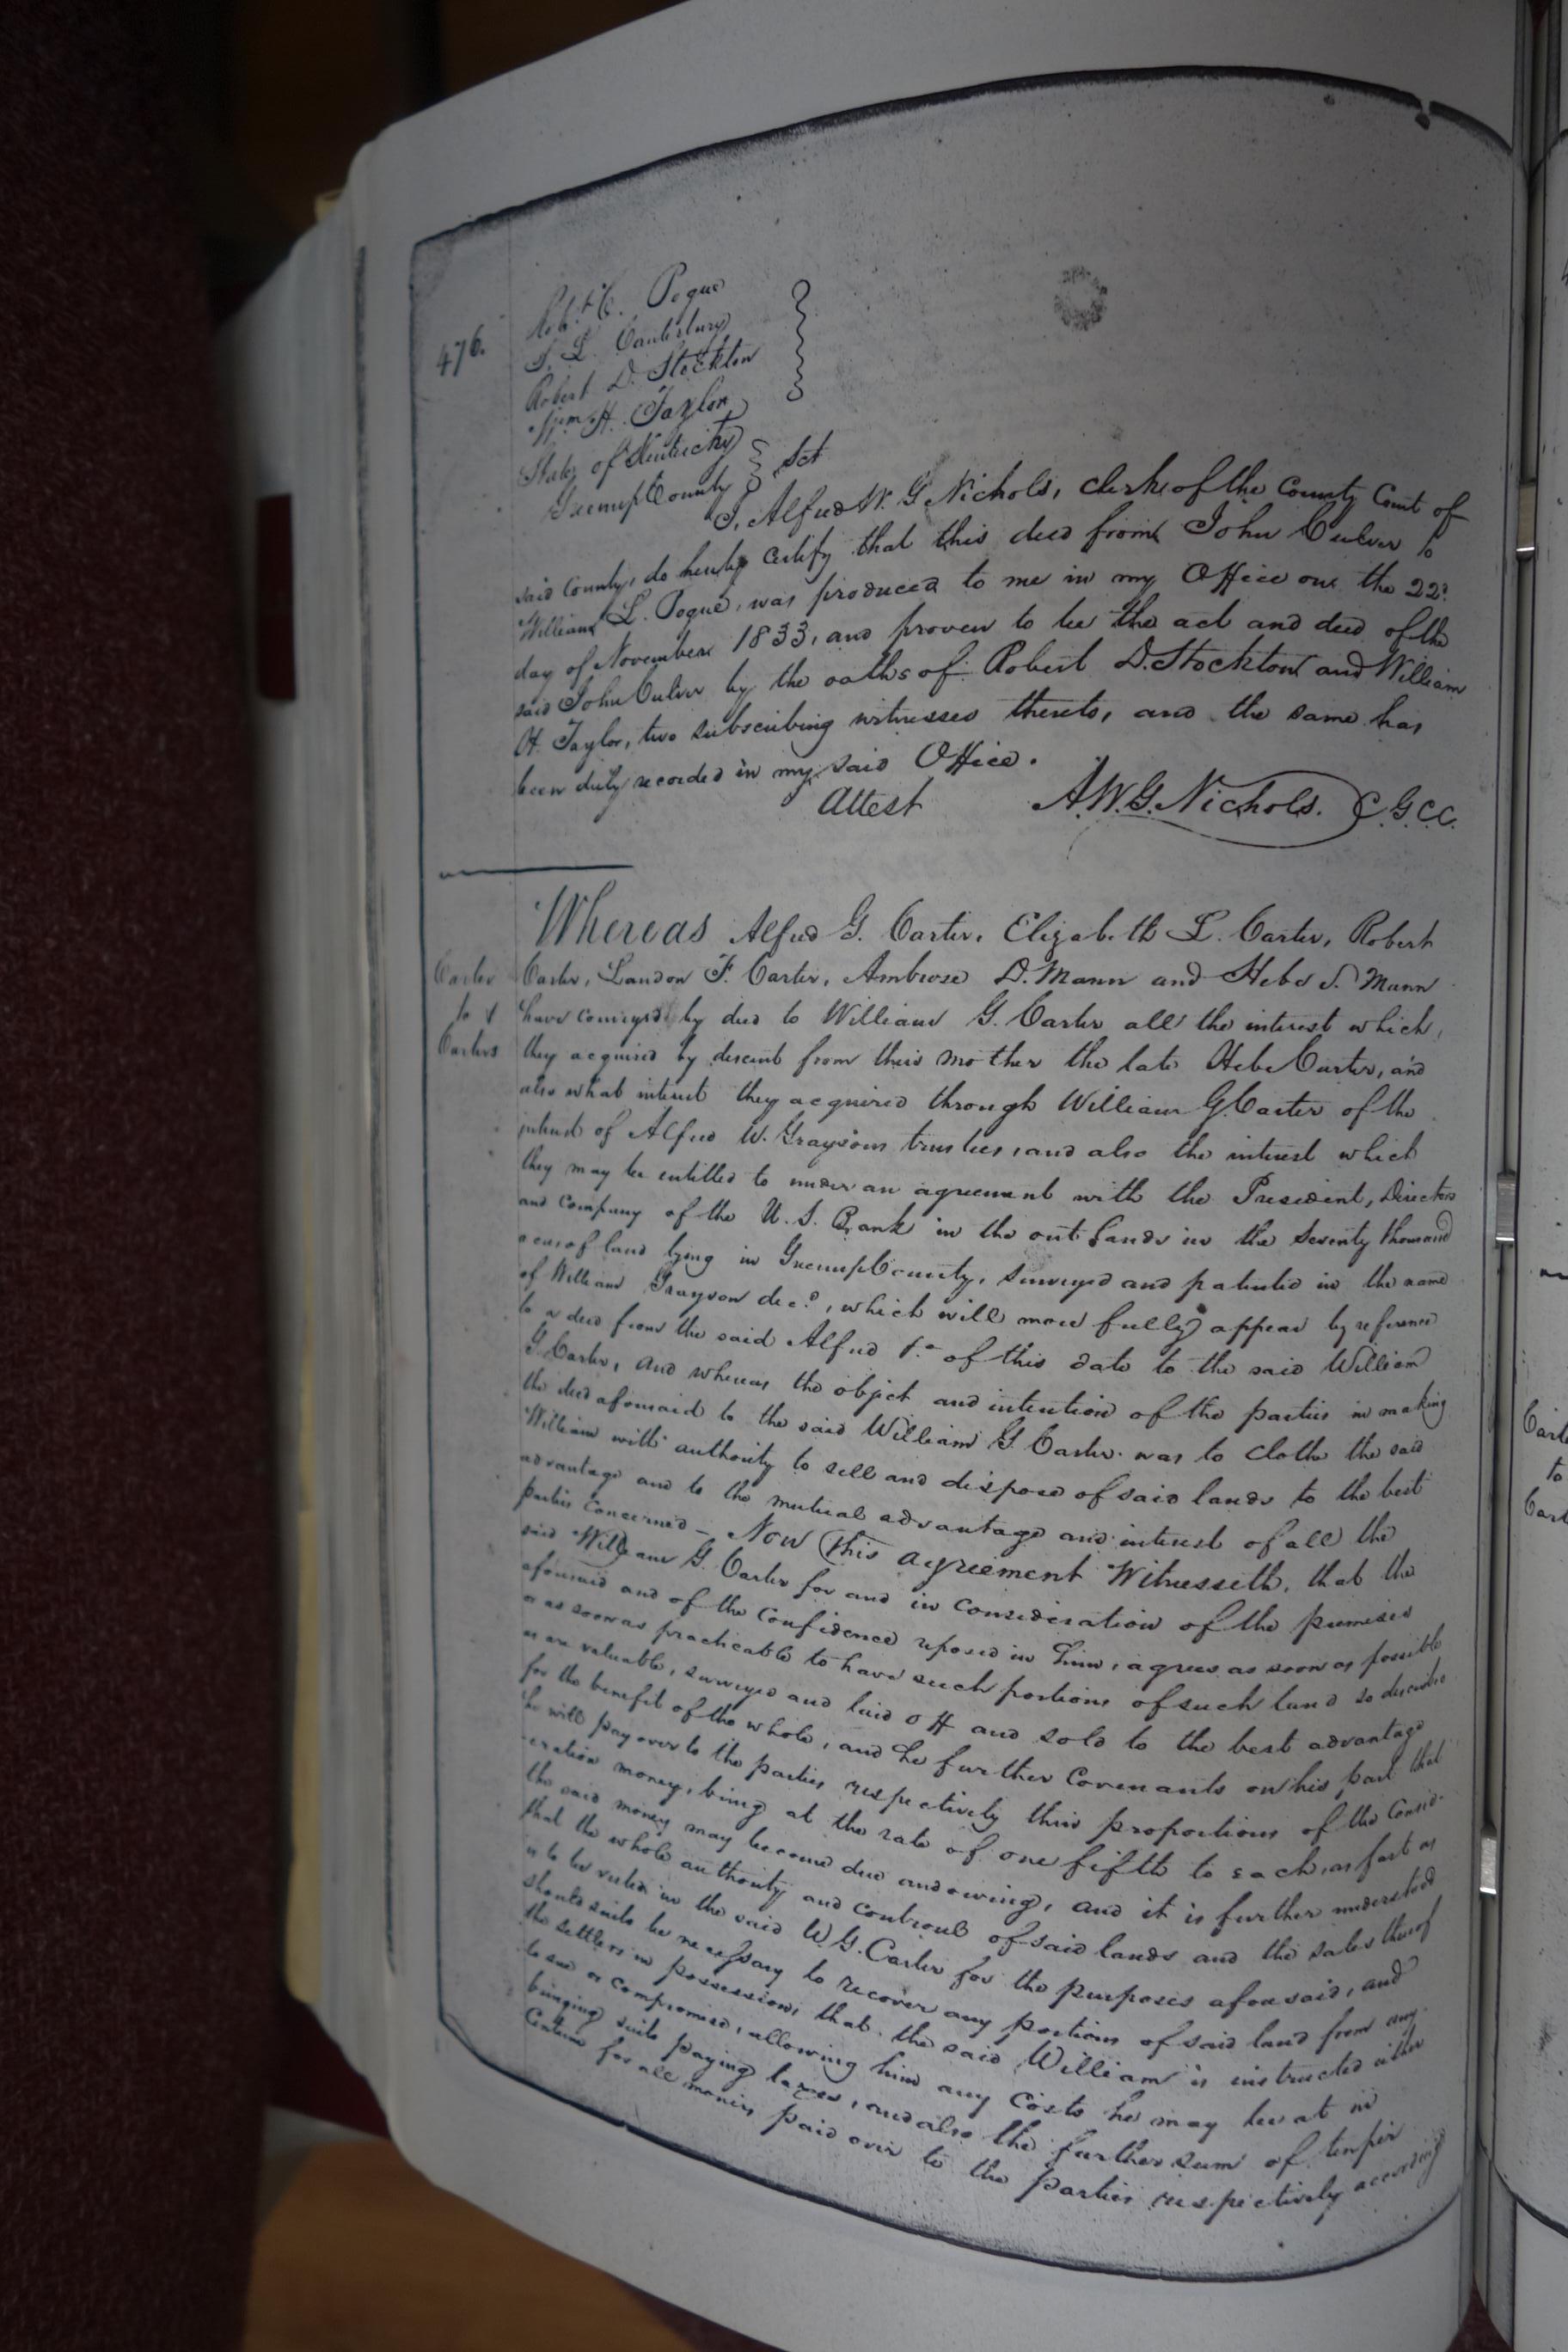 476.
Robt. C. Pogue
S. L. Canterbury
Robert D. Stockton
Wm. H. Taylor
State of Kentucky
Greenup County Sct
I, Alfred W. G. Nichols, clerk of the County Court of
said County, do hereby certify that this deed from John Culver to
William L. Pogue, was produced to me in my Office on the 22d.
day of November 1833, and proven to be the act and deed of the
said John Culver by the oaths of Robert D. Stockton and William
H. Taylor, two subscribing witnesses thereto, and the same has
been duly recorded in my said Office.
Attest A.W.G. Nichols. C.G.C.C.
Whereas Alfred G. Carter, Elizabeth L. Carter, Robert
Carter
to
Carters
Carter, Landon F. Carter, Ambrose D. Mann and Hebe S. Mann
have conveyed by deed to William G. Carter all the interest which,
they acquired by descent from their mother the late Hebe Carter, and
also what interest they acquired through William G Carter of the
interest of Alfred W. Graysons trustees, and also the interest which
they may be entitled to under an agreement with the President, Directors
and Company of the U. S. Bank in the out lands in the Seventy thousand
acres of land lying in Greenup County, surveyed and patented in the name
of William Grayson decd., which will more fully appear by reference
to a deed from the said Alfred of this date to the said William
G. Carter, and whereas the object and intention of the parties in making
the deed aforesaid to the said William G Carter was to clothe the said
William with authority to sell and dispose of said lands to the best
advantage and to the mutual advantage and interest of all the
parties concerned – Now This agreement Witnesseth, that the
said William G. Carter for and in consideration of the premises
aforesaid and of the confidence reposed in him, agrees as soon as possible
or as soon as practicable to have such portions of such land so described
as are valuable, surveyed and laid off and sold to the best advantage
for the benefit of the whole, and he further covenants on his part that
he will pay over to the parties respectively their proportions of the consid-
eration money, being at the rate of one fifth to each, as fast as
the said money may become due and owing, and it is further understood
that the whole authority and controul of said lands and the sales thereof
is to be vested in the said W. G. Carter for the purposes aforesaid, and
should suits be necessary to recover any portions of said land from any
the settlers in possession, that the said William is instructed either
to sue or compromise, allowing him any costs he may be at in
bringing suits paying taxes, and also the further sum of ten per
Centum for all monies paid over to the parties respectively according
Carte
to
Cart